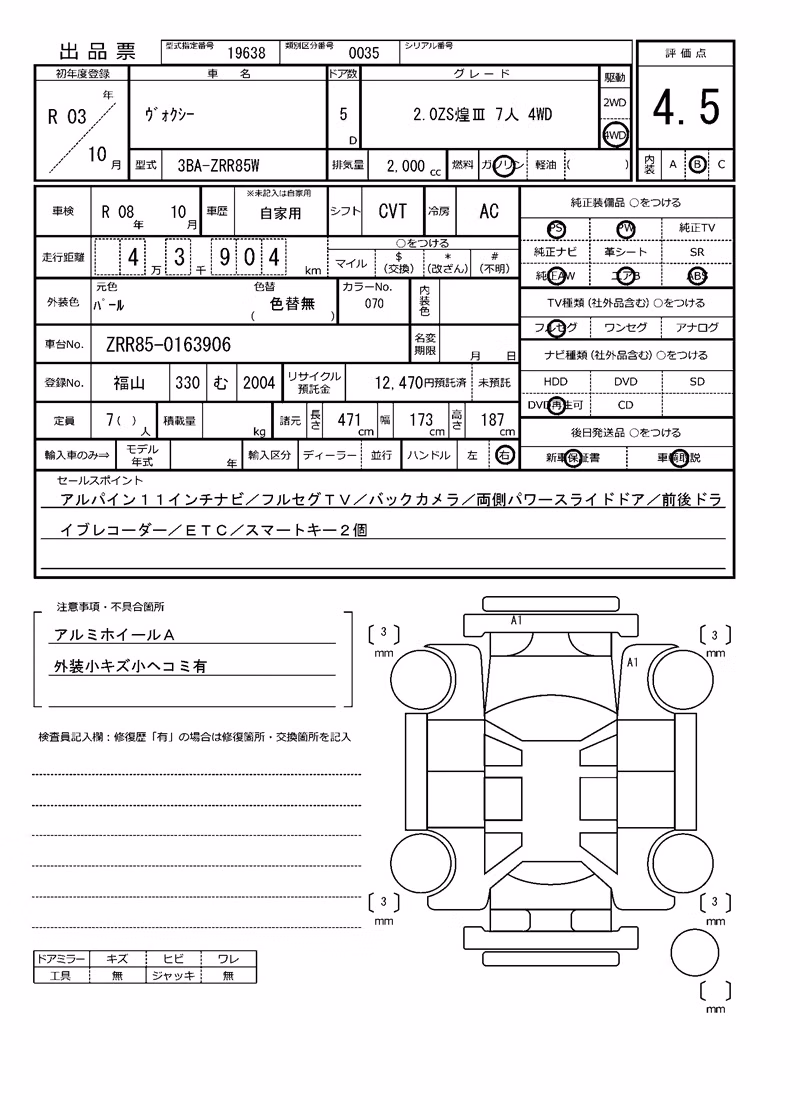 出品票 型式指定番号 19638 類別区分番号 0035 シリアル番号
評価点
4.5
内装 A B C
初年度登録 車名 ドア数 グレード 駆動
R 03 年 10 月
ヴォクシー 5 D 2.0ZS煌Ⅲ 7人 4WD
2WD
4WD
型式 3BA-ZRR85W 排気量 2,000 cc 燃料 ガソリン 軽油 ( )
車検 R 08 年 10 月 車歴 ※未記入は自家用 自家用 シフト CVT 冷房 AC
走行距離 4 万 3 千 9 0 4 km
○をつける
マイル $(交換) *(改ざん) #(不明)
外装色 元色 パール 色替 色替無 ( ) カラーNo. 070 内装色
車台No. ZRR85-0163906 名変期限 月 日
登録No. 福山 330 む 2004 リサイクル預託金 12,470円預託済 未預託
定員 7 ( ) 人 積載量 kg 諸元 長さ 471 cm 幅 173 cm 高さ 187 cm
輸入車のみ⇒ モデル年式 年 輸入区分 ディーラー 並行 ハンドル 左 右
純正装備品 ○をつける
PS PW 純正TV
純正ナビ 革シート SR
純正AW エアB ABS
TV種類(社外品含む)○をつける
フルセグ ワンセグ アナログ
ナビ種類(社外品含む)○をつける
HDD DVD SD
DVD再生可 CD
後日発送品 ○をつける
新車保証書 車輌取説
セールスポイント
アルパイン11インチナビ/フルセグTV/バックカメラ/両側パワースライドドア/前後ドラ
イブレコーダー/ETC/スマートキー2個
注意事項・不具合箇所
アルミホイールA
外装小キズ小ヘコミ有
検査員記入欄:修復歴「有」の場合は修復箇所・交換箇所を記入
ドアミラー キズ ヒビ ワレ
工具 無 ジャッキ 無
A1
A1
[ 3 ] mm
[ 3 ] mm
[ 3 ] mm
[ 3 ] mm
[ ] mm